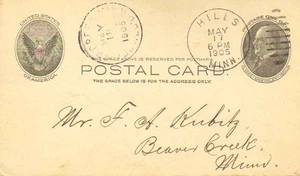 UNITED STATES
OF AMERICA
MAY
17
1905
HILLS
MAY
17
6 PM
1905
MINN.
POSTAGE ONE CENT
THE SPACE ABOVE IS RESERVED FOR POSTMARK.
POSTAL CARD.
THE SPACE BELOW IS FOR THE ADDRESS ONLY.
Mr. F. A. Kubitz
Beaver Creek,
Minn.